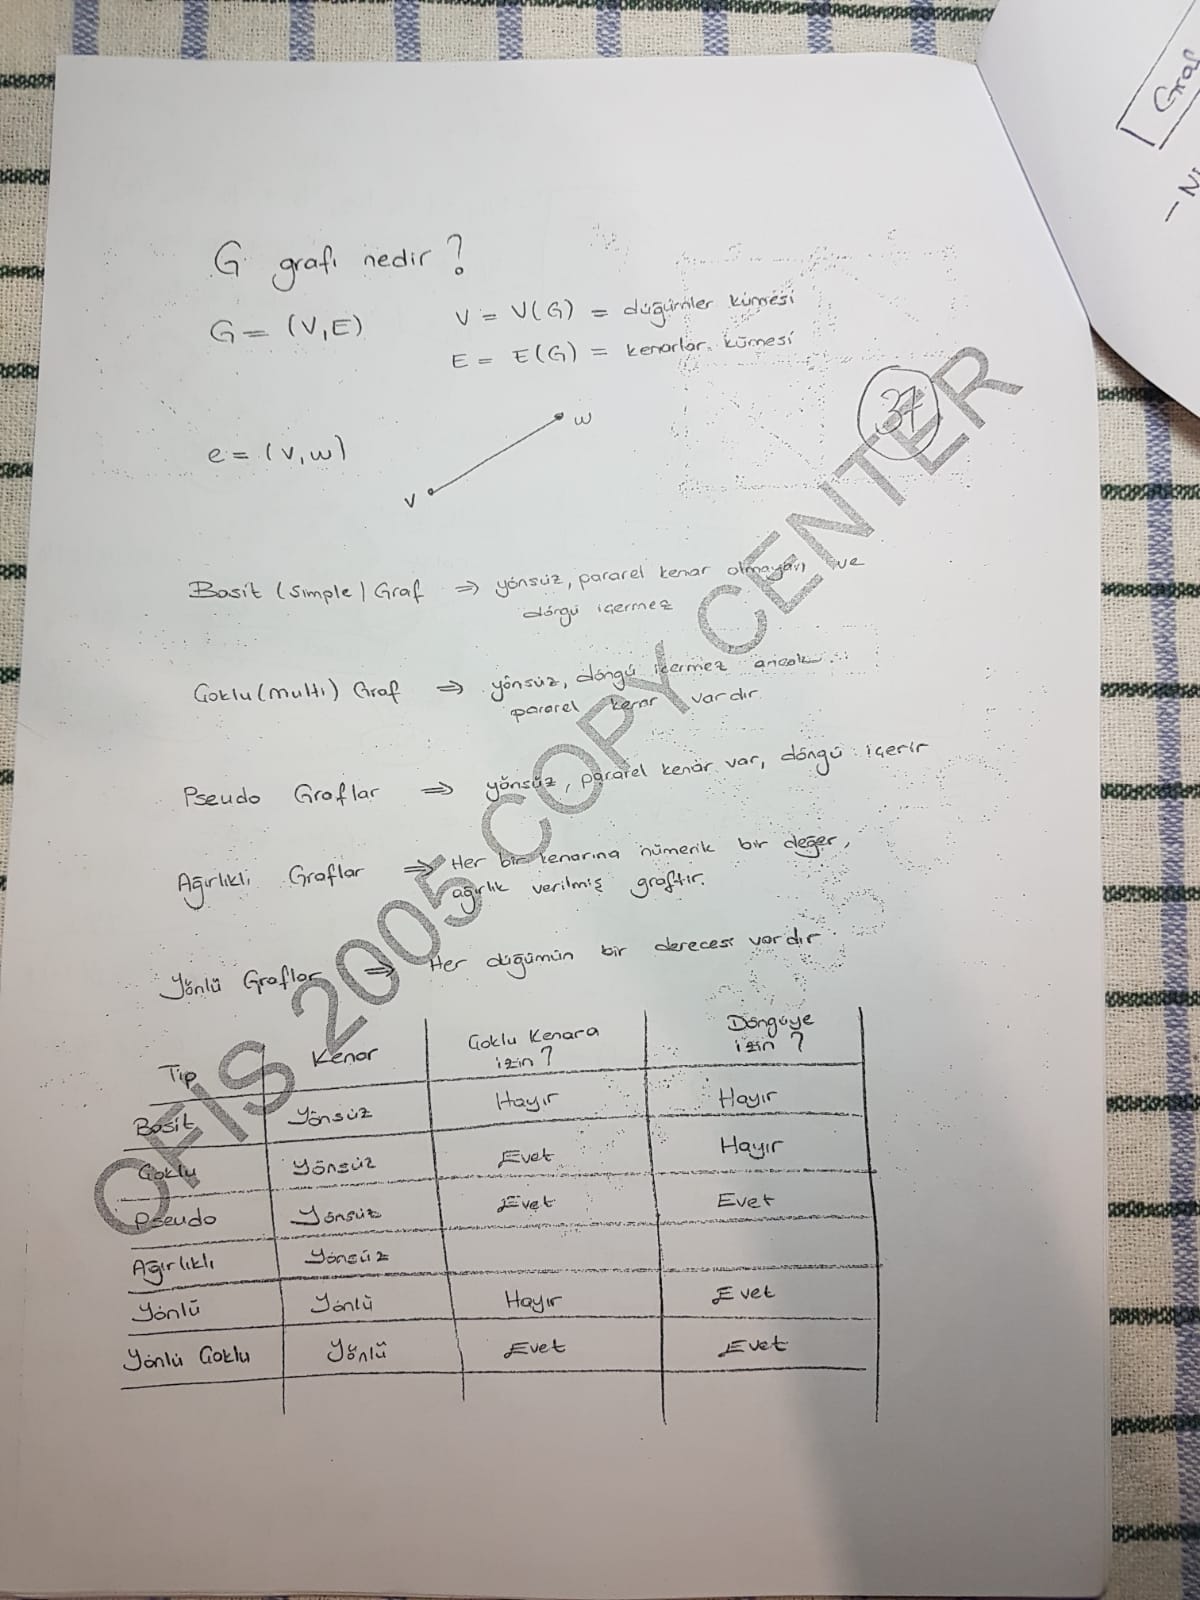 Graf
G grafı nedir?
G = (V,E)
V = V(G) = düğümler kümesi
E = E(G) = kenarlar kümesi
37
e = (v,w)
w
v
Basit (simple) Graf ⇒ yönsüz, pararel kenar olmayan ve
döngü içermez
Çoklu (multi) Graf ⇒ yönsüz, döngü içermez ancak
pararel kenar vardır
Pseudo Graflar ⇒ yönsüz, pararel kenar var, döngü içerir
Ağırlıklı Graflar ⇒ Her bir kenarına nümerik bir değer,
ağırlık verilmiş graftır.
Yönlü Graflar ⇒ Her düğümün bir derecesi vardır
Tip Kenar Çoklu Kenara izin? Döngüye izin?
Basit Yönsüz Hayır Hayır
Çoklu Yönsüz Evet Hayır
Pseudo Yönsüz Evet Evet
Ağırlıklı Yönsüz
Yönlü Yönlü Hayır Evet
Yönlü Çoklu Yönlü Evet Evet
OFIS 2005 COPY CENTER